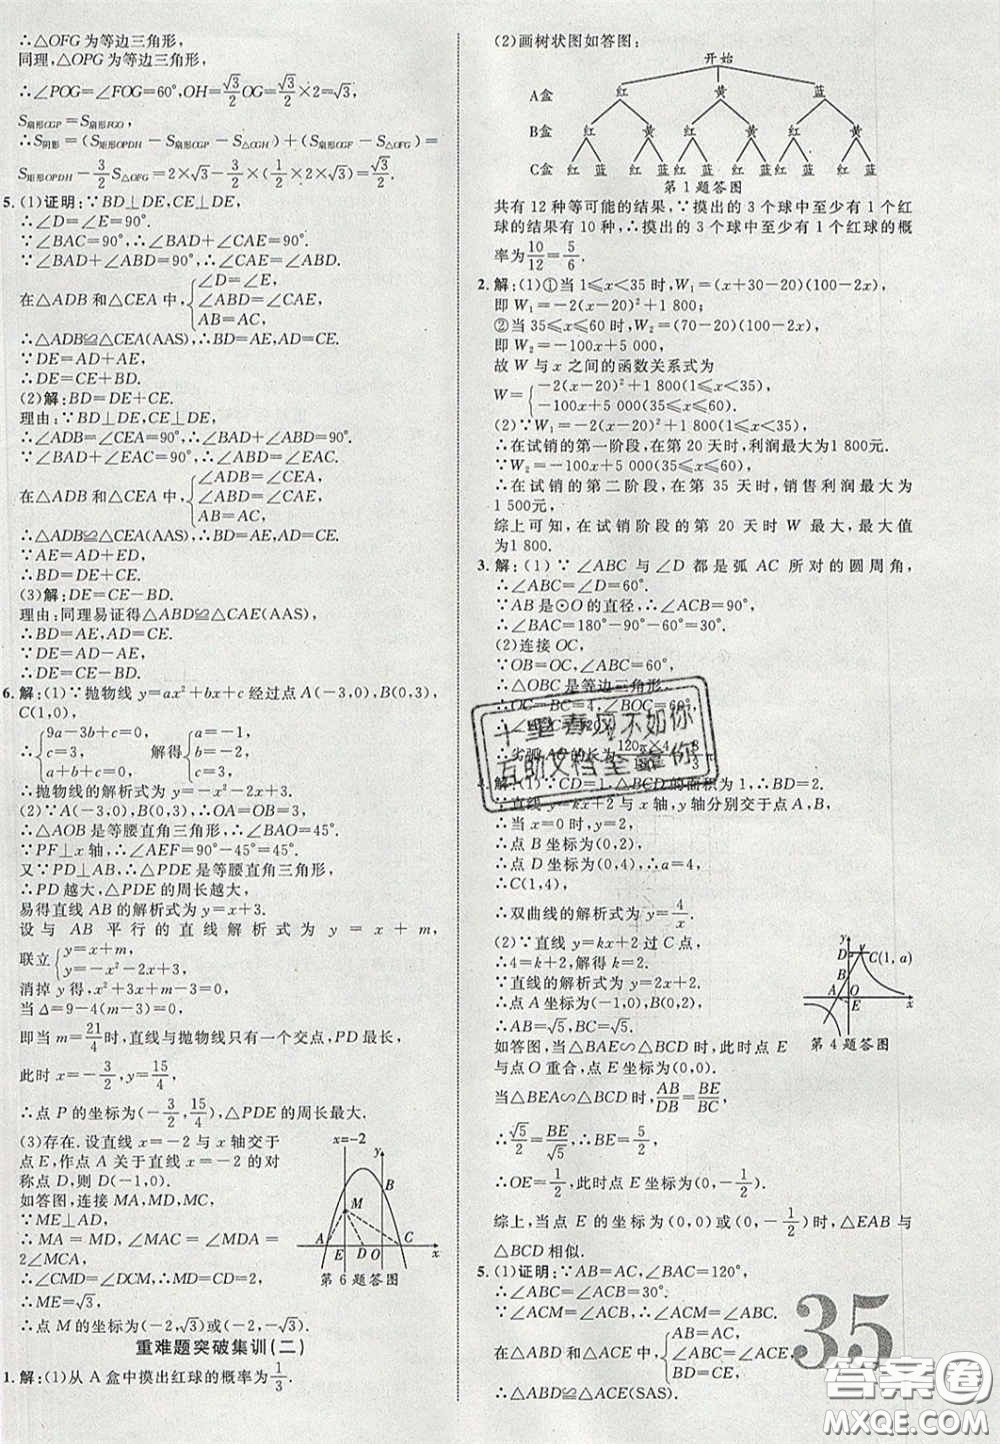 ∴△OFG为等边三角形,
同理,△OPG为等边三角形,
∴∠POG=∠FOG=60°,OH=√3/2 OG=√3/2×2=√3,
S扇形OGP=S扇形FGO.
∴S阴影=(S矩形OPDH-S扇形OGP-S△OGH)+(S扇形FGO-S△OFG)=
S矩形OPDH-3/2 S△OFG=2×√3-3/2×(1/2×2×√3)=√3/2.
5.(1)证明:∵BD⊥DE,CE⊥DE,
∴∠D=∠E=90°.
∵∠BAC=90°,∴∠BAD+∠CAE=90°.
∵∠BAD+∠ABD=90°,∴∠CAE=∠ABD.
在△ADB和△CEA中,{∠D=∠E,
∠ABD=∠CAE,
AB=AC,
∴△ADB≌△CEA(AAS),∴BD=AE,AD=CE.
∵DE=AD+AE,
∴DE=CE+BD.
(2)解:BD=DE+CE.
理由:∵BD⊥DE,CE⊥DE,
∴∠ADB=∠CEA=90°,∴∠BAD+∠ABD=90°.
∵∠BAD+∠EAC=90°,∴∠ABD=∠EAC.
在△ADB和△CEA中,{∠ADB=∠CEA,
∠ABD=∠CAE,
AB=AC,
∴△ADB≌△CEA(AAS),∴BD=AE,AD=CE.
∵AE=AD+ED,
∴BD=DE+CE.
(3)解:DE=CE-BD.
理由:同理易证得△ABD≌△CAE(AAS),
∴BD=AE,AD=CE.
∵DE=AD-AE,
∴DE=CE-BD.
6.解:(1)∵抛物线y=ax²+bx+c经过点A(-3,0),B(0,3),
C(1,0),
∴{9a-3b+c=0, c=3, a+b+c=0, 解得{a=-1, b=-2, c=3.
∴抛物线的解析式为y=-x²-2x+3.
(2)∵A(-3,0),B(0,3),∴OA=OB=3,
∴△AOB是等腰直角三角形,∴∠BAO=45°.
∵PF⊥x轴,∴∠AEF=90°-45°=45°.
又∵PD⊥AB,∴△PDE是等腰直角三角形,
∴PD越大,△PDE的周长越大.
易得直线AB的解析式为y=x+3.
设与AB平行的直线解析式为y=x+m,
联立{y=x+m,
y=-x²-2x+3,
消掉y得,x²+3x+m-3=0,
当Δ=9-4(m-3)=0,
即当m=21/4时,直线与抛物线只有一个交点,PD最长,
此时x=-3/2,y=15/4,
∴点P的坐标为(-3/2,15/4),△PDE的周长最大.
(3)存在.设直线x=-2与x轴交于
点E,作点A关于直线x=-2的对
称点D,则D(-1,0).
如答图,连接MA,MD,MC,
∵ME⊥AD,
∴MA=MD,∠MAC=∠MDA=
2∠MCA,
∴∠CMD=∠DCM,∴MD=CD=2,
∴ME=√3,
∴点M的坐标为(-2,√3)或(-2,-√3).
x=-2
y
B
M
A E D O C x
第6题答图
重难题突破集训(二)
1.解:(1)从A盒中摸出红球的概率为1/3.
(2)画树状图如答图:
开始
A盒 红 黄 蓝
B盒 红 黄 红 黄 红 黄
C盒 红 蓝 红 蓝 红 蓝 红 蓝 红 蓝 红 蓝
第1题答图
共有12种等可能的结果,∵摸出的3个球中至少有1个红
球的结果有10种,∴摸出的3个球中至少有1个红球的概
率为10/12=5/6.
2.解:(1)①当1≤x<35时,W₁=(x+30-20)(100-2x),
即W₁=-2(x-20)²+1 800;
②当35≤x≤60时,W₂=(70-20)(100-2x),
即W₂=-100x+5 000,
故W与x之间的函数关系式为
W={-2(x-20)²+1 800(1≤x<35),
-100x+5 000(35≤x≤60).
(2)∵W₁=-2(x-20)²+1 800(1≤x<35),
∴在试销的第一阶段,在第20天时,利润最大为1 800元.
∵W₂=-100x+5 000(35≤x≤60),
∴在试销的第二阶段,在第35天时,销售利润最大为
1 500元.
综上可知,在试销阶段的第20天时W最大,最大值
为1 800.
3.解:(1)∵∠ABC与∠D都是弧AC所对的圆周角,
∴∠ABC=∠D=60°.
∵AB是⊙O的直径,∴∠ACB=90°,
∴∠BAC=180°-90°-60°=30°.
(2)连接OC,
∵OB=OC,∠ABC=60°,
∴△OBC是等边三角形.
∴OC=BC=4,∠BOC=60°,
∴∠AOC=120°,
∴劣弧AC的长为120π×4/180=8π/3.
4.解:(1)∵CD=1,△BCD的面积为1,∴BD=2.
∵直线y=kx+2与x轴,y轴分别交于点A,B,
∴当x=0时,y=2,
∴点B坐标为(0,2),
∴点D坐标为(0,4),∴a=4,
∴C(1,4),
∴双曲线的解析式为y=4/x.
(2)∵直线y=kx+2过C点,
∴4=k+2,解得k=2.
∵直线的解析式为y=2x+2,
∴点A坐标为(-1,0),B(0,2),
∴AB=√5,BC=√5.
如答图,当△BAE∽△BCD时,此时点E
与点O重合,点E坐标为(0,0).
当△BEA∽△BCD时,AB/DB=BE/BC,
∴√5/2=BE/√5,∴BE=5/2,
∴OE=1/2,此时E坐标为(0,-1/2).
综上,当点E的坐标为(0,0)或(0,-1/2)时,△EAB与
△BCD相似.
y
D C(1,a)
B
A O
E x
第4题答图
5.(1)证明:∵AB=AC,∠BAC=120°,
∴∠ABC=∠ACB=30°.
∵∠ACM=∠ACB,∴∠ACM=∠ABC.
在△ABD和△ACE中,{AB=AC,
∠ABC=∠ACE,
BD=CE,
∴△ABD≌△ACE(SAS).
35
十里春风不如你
互助文档全靠你
答案圈
MXQE.COM